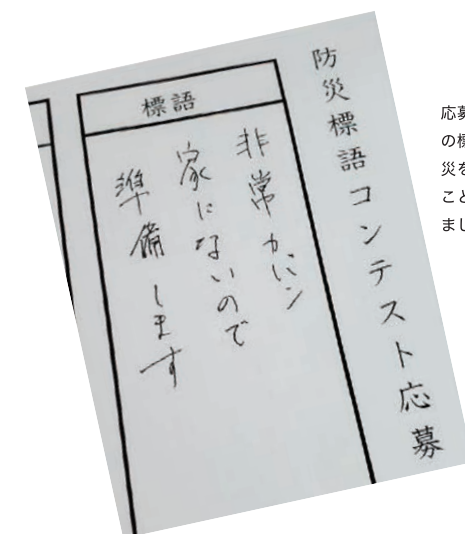 防災標語コンテスト応募
標語
非常カバン
家にないので
準備します
応募
の標
災を
こと
まし